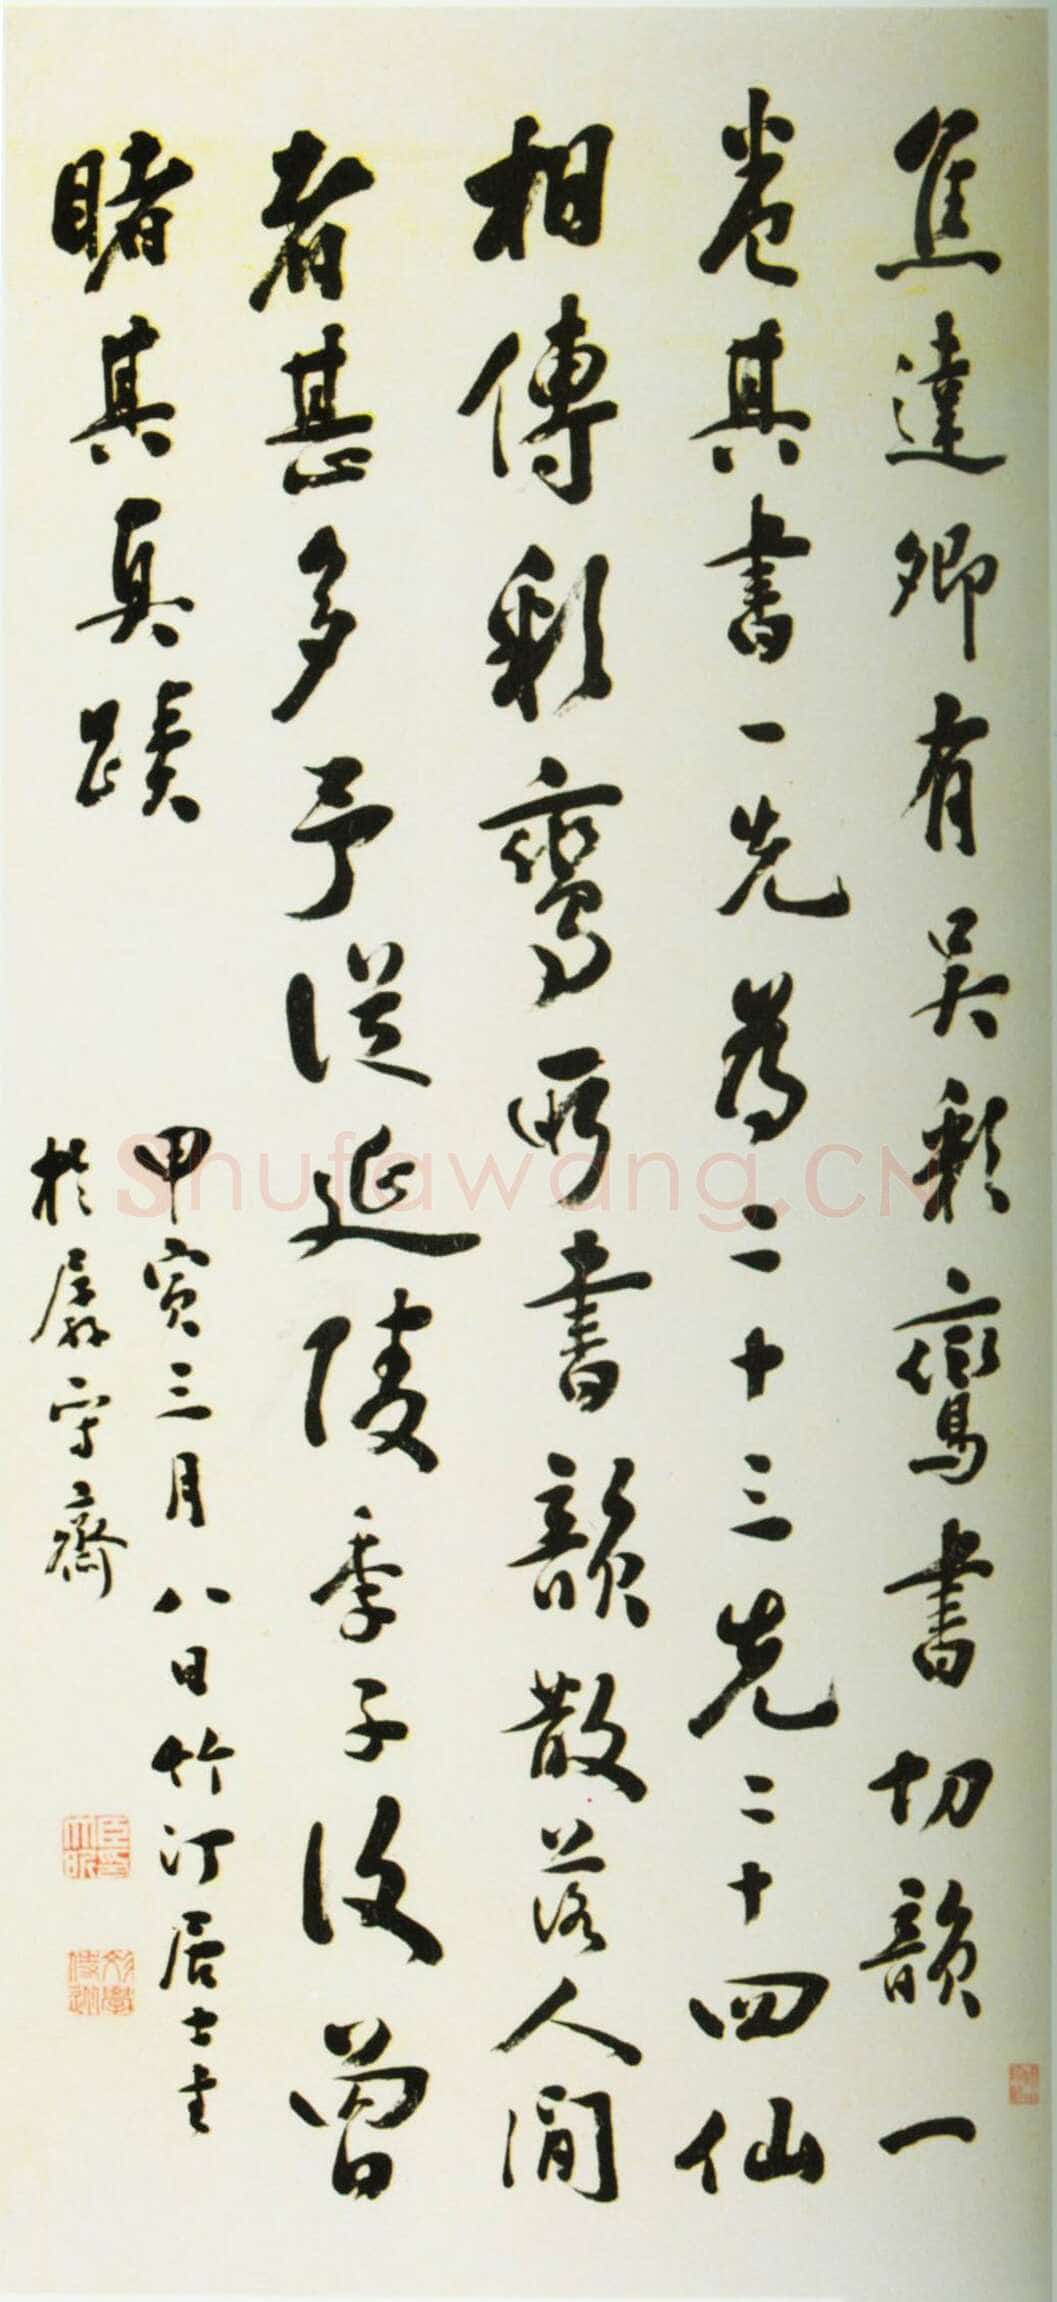 焦達卿有吳彩鸞書切韻一
卷其書一先為二十三先二十四仙
相傳彩鸞所書韻散落人間
者甚多予從延陵季子後曾
睹其真蹟
甲寅三月八日竹汀居士書
於孱守齋
Shufawang.CN